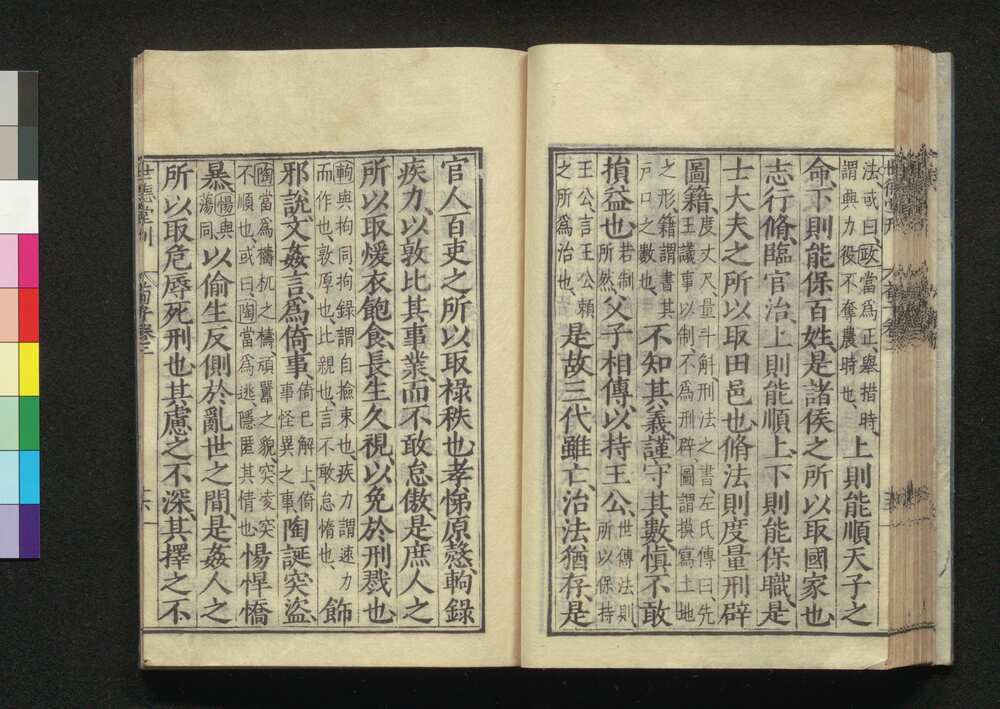 法或曰政當爲正舉措時
謂與力役不奪農時也上則能順天子之
命下則能保百姓是諸侯之所以取國家也
志行脩臨官治上則能順上下則能保職是
士大夫之所以取田邑也脩法則度量刑辟
圖籍度丈尺量斗斛刑法之書左氏傳曰先
王議事以制不爲刑辟圖謂摸寫土地
之形籍謂書其
戶口之數也不知其義謹守其數愼不敢
損益也若制
所然父子相傳以持王公世傳法則
所以保持
王公言王公賴
之所爲治也是故三代雖亡治法猶存是
官人百吏之所以取祿秩也孝悌原愨軥錄
疾力以敦比其事業而不敢怠傲是庶人之
所以取煖衣飽食長生久視以免於刑戮也
軥與拘同拘錄謂自撿束也疾力謂速力
而作也敦原也比親也言不敢怠惰也飾
邪說文姦言爲倚事倚已解上倚
事怪異之事陶誕突盜
陶當爲檮杌之檮頑嚚之貌突凌突
不順也或曰陶當爲逃隱匿其情也惕悍憍
暴惕與
蕩同以偷生反側於亂世之閒是姦人之
所以取危辱死刑也其慮之不深其擇之不